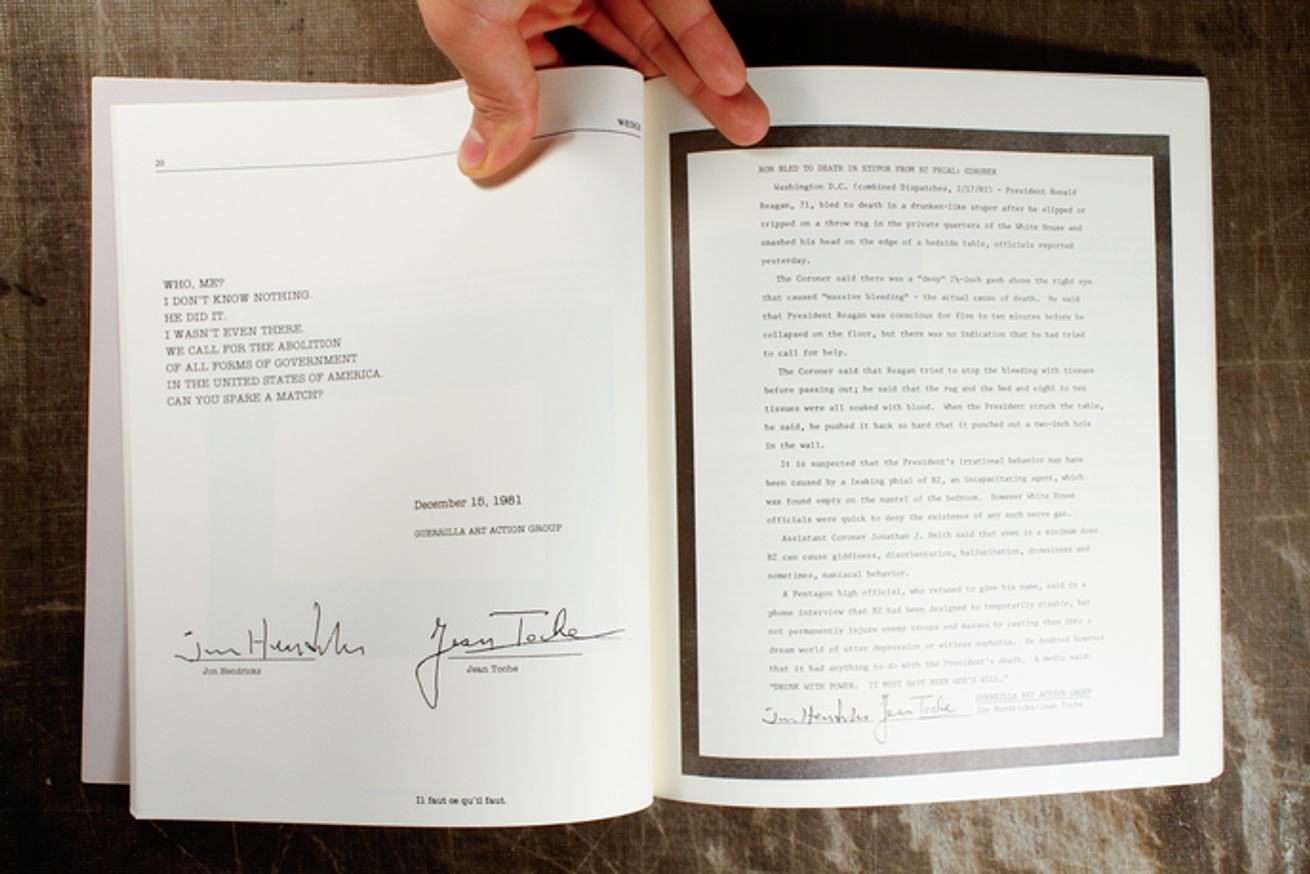 20
WEDGE
WHO, ME?
I DON'T KNOW NOTHING.
HE DID IT.
I WASN'T EVEN THERE.
WE CALL FOR THE ABOLITION
OF ALL FORMS OF GOVERNMENT
IN THE UNITED STATES OF AMERICA.
CAN YOU SPARE A MATCH?
December 15, 1981
GUERRILLA ART ACTION GROUP
Jon Hendricks Jean Toche
Jon Hendricks Jean Toche
Il faut ce qu'il faut.
RON BLED TO DEATH IN STUPOR FROM BZ PHIAL: CORONER
Washington D.C. (combined Dispatches, 2/17/82) - President Ronald
Reagan, 71, bled to death in a drunken-like stupor after he slipped or
tripped on a throw rug in the private quarters of the White House and
smashed his head on the edge of a bedside table, officials reported
yesterday.
The Coroner said there was a "deep" 2½-inch gash above the right eye
that caused "massive bleeding" - the actual cause of death. He said
that President Reagan was conscious for five to ten minutes before he
collapsed on the floor, but there was no indication that he had tried
to call for help.
The Coroner said that Reagan tried to stop the bleeding with tissues
before passing out; he said that the rug and the bed and eight to ten
tissues were all soaked with blood. When the President struck the table,
he said, he pushed it back so hard that it punched out a two-inch hole
in the wall.
It is suspected that the President's irrational behavior may have
been caused by a leaking phial of BZ, an incapacitating agent, which
was found empty on the mantel of the bedroom. However White House
officials were quick to deny the existence of any such nerve gas.
Assistant Coroner Jonathan J. Smith said that even in a minimum dose
BZ can cause giddiness, disorientation, hallucination, drowsiness and
sometimes, maniacal behavior.
A Pentagon high official, who refused to give his name, said in a
phone interview that BZ had been designed to temporarily disable, but
not permanently injure enemy troops and masses by casting them into a
dream world of utter depression or witless euphoria. He doubted however
that it had anything to do with the President's death. A medic said:
"DRUNK WITH POWER. IT MUST HAVE BEEN GOD'S WILL."
Jon Hendricks Jean Toche
GUERRILLA ART ACTION GROUP
Jon Hendricks/Jean Toche